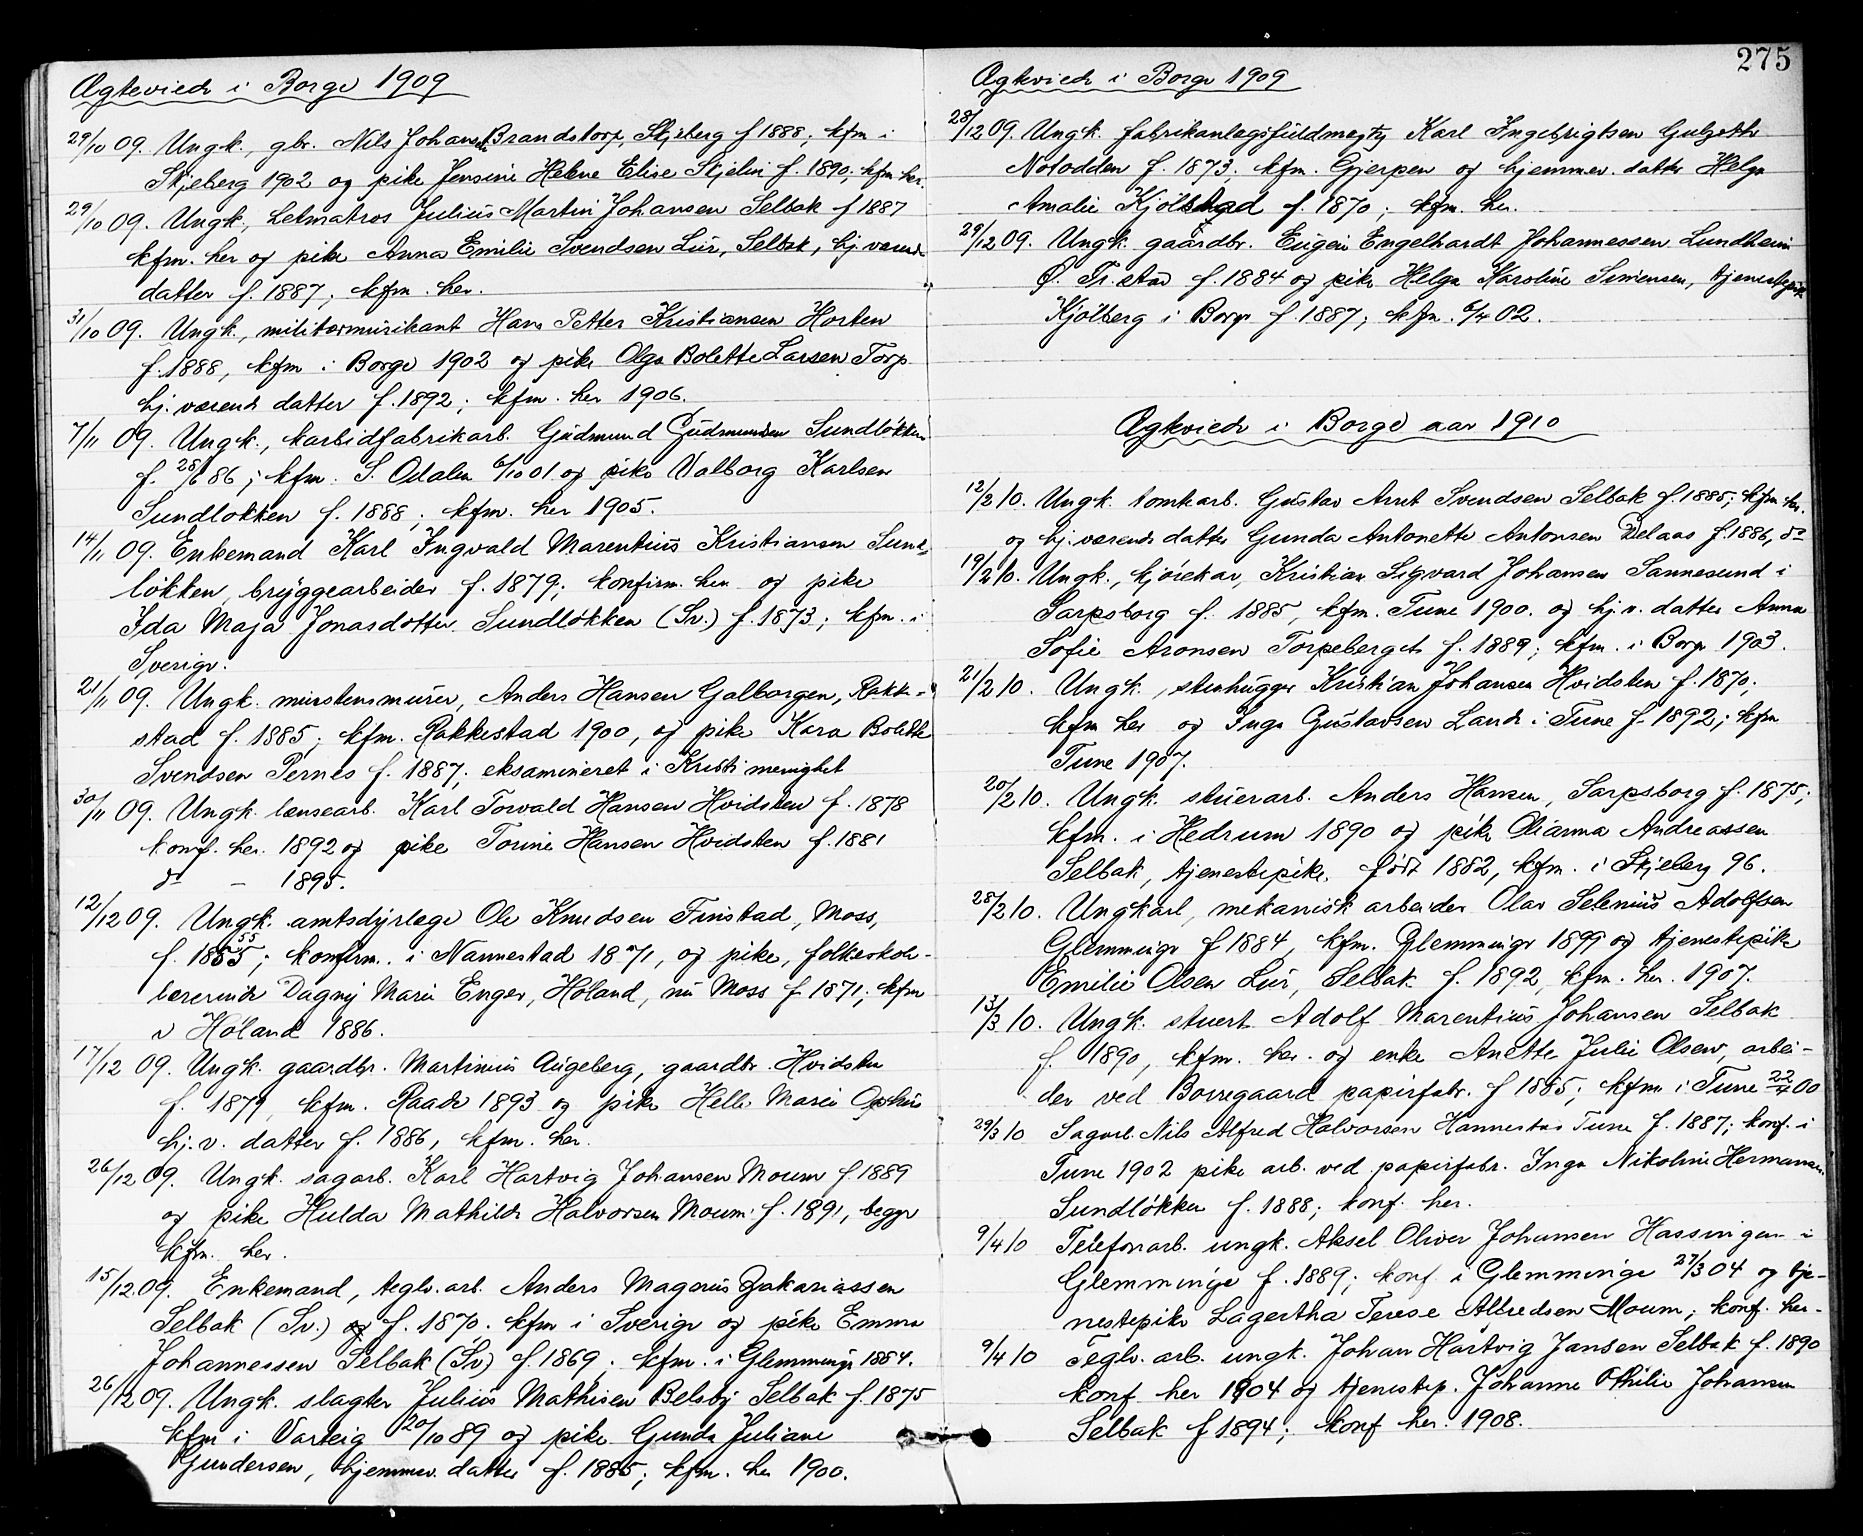 Ægteviede i Borge 1909
29/10 09. Ungk., gbr. Nils Johansen Brandstorp, Skjeberg f 1888; kfm i
Skjeberg 1902 og pike Jensine Helene Elise Skjelin f. 1890; kfm her.
29/10 09. Ungk., Letmatros Julius Martin Johansen Selbak f 1887
kfm. her og pike Anna Emilie Svendsen Lur, Selbak, hj. værende
datter f. 1887; kfm. her.
31/10 09. Ungk., militærmusikant Hans Petter Kristiansen Horten
f. 1888, kfm i Borge 1902 og pike Olga Bolette Larsen Torp
hj. værende datter f. 1892; kfm. her 1906.
7/11 09. Ungk., karbidfabrikarb. Gudmund Gudmundsen Sundløkken
f. 28/6 86; kfm. S. Odalen 6/10 01 og pike Valborg Karlsen
Sundløkken f. 1888; kfm. her 1905.
14/11 09. Enkemand Karl Ingvald Marentius Kristiansen Sund-
løkken, bryggearbeider f. 1879; konfirm. her og pike
Ida Maja Jonasdotter Sundløkken (Sv.) f. 1873; kfm. i
Sverige.
21/11 09. Ungk. murstensmurer, Anders Hansen Galborgen, Rakke-
stad f. 1885; kfm. Rakkestad 1900, og pike Kara Bolette
Svendsen Pernes f. 1887; eksamineret i Kristi menighet
30/11 09. Ungk. lænsearb. Karl Torvald Hansen Hvidsten f. 1878
konf. her. 1892 og pike Torine Hansen Hvidsten f. 1881
do - 1895.
12/12 09. Ungk. amtsdyrlæge Ole Knudsen Finstad, Moss,
f. 1855; konfirm. i Nannestad 1871, og pike, folkeskole-
lærerinde Dagny Marie Enger, Høland, nu Moss f. 1871; kfm
i Høland 1886.
17/12 09. Ungk. gaardbr. Martinius Augeberg, gaardbr. Hvidsten
f. 1879, kfm. Raade 1893 og pike Helle Marie Ophus
hj. v. datter f. 1886, kfm. her.
26/12 09. Ungk. sagarb. Karl Hartvig Johansen Moum f. 1889
og pike Hulda Mathilde Halvorsen Moum f. 1891, begge
kfm. her.
15/12 09. Enkemand, teglv. arb. Anders Magnus Zakariassen
Selbak (Sv.) f. 1870. kfm i Sverige og pike Emma
Johannessen Selbak (Sv) f. 1869; kfm. i Glemminge 1884.
26/12 09. Ungk. slagter Julius Mathisen Belsby Selbak f. 1875
kfm i Varteig 20/10 89 og pike Gunda Juliane
Gundersen, hjemmev. datter f. 1885; kfm. her 1900.
275
Ægteviede i Borge 1909
28/12 09. Ungk. fabrikanlægsfuldmegtig Karl Ingebrigtsen Gulseth
Notodden f. 1873; kfm. Gjerpen og hjemmev. datter Helga
Amalie Kjølstad f. 1870; kfm. her.
29/12 09. Ungk. gaardbr. Eugen Engelhardt Johannessen Lundheim
Ø. Fr. stad f. 1884 og pike Helga Karoline Simensen, tjenestepike
Kjølberg i Borge f. 1887; kfm. 6/4 02.
Ægteviede i Borge aar 1910
12/2 10. Ungk. tomtearb. Gustav Arnt Svendsen Selbak f. 1885; kfm her.
og hj. værende datter Gunda Antonette Antonsen Delaas f. 1886, do
19/2 10. Ungk., kjørekar, Kristian Sigvard Johansen Sannesund i
Sarpsborg f. 1885, kfm. Tune 1900. og hj. v. datter Anna
Sofie Aronsen Torpeberget f. 1889; kfm. i Borge 1903.
21/2 10. Ungk., stenhugger Kristian Johansen Hvidsten f. 1870;
kfm her og Inga Gustavsen Lande i Tune f. 1892; kfm
Tune 1907.
20/2 10. Ungk. stuerarb. Anders Hansen, Sarpsborg f. 1875;
kfm. i Hedrum 1890 og pike Olianna Andreassen
Selbak, tjenestepike, født 1882, kfm. i Skjeberg 96.
28/2 10. Ungkarl, mekanisk arbeider Olav Selenius Adolfsen
Glemminge f. 1884, kfm. Glemminge 1899 og tjenestepike
Emilie Olsen Lur, Selbak f. 1892, kfm. her. 1907.
13/3 10. Ungk. stuert Adolf Marentius Johansen Selbak
f. 1890, kfm. her. og enke Anette Julie Olsen, arbei-
der ved Borregaard papirfabr. f 1885; kfm i Tune 22/4 00
29/3 10 Sagarb. Nils Alfred Halvorsen Hannestad Tune f. 1887; konf. i
Tune 1902 pike arb. ved papirfabr. Inga Nikoline Hermansen
Sundløkken f. 1888; konf. her.
9/4 10 Telefonarb. ungk. Aksel Oliver Johansen Hassingen i
Glemminge f. 1889; konf i Glemminge 27/3 04 og tje-
nestepike Lagertha Terese Alfredsen Moum; konf. her.
9/4 10 Teglv. arb. ungk. Johan Hartvig Jansen Selbak f. 1890
konf her 1904 og tjenestep. Johanne Othilie Johansen
Selbak f 1894; konf her. 1908.